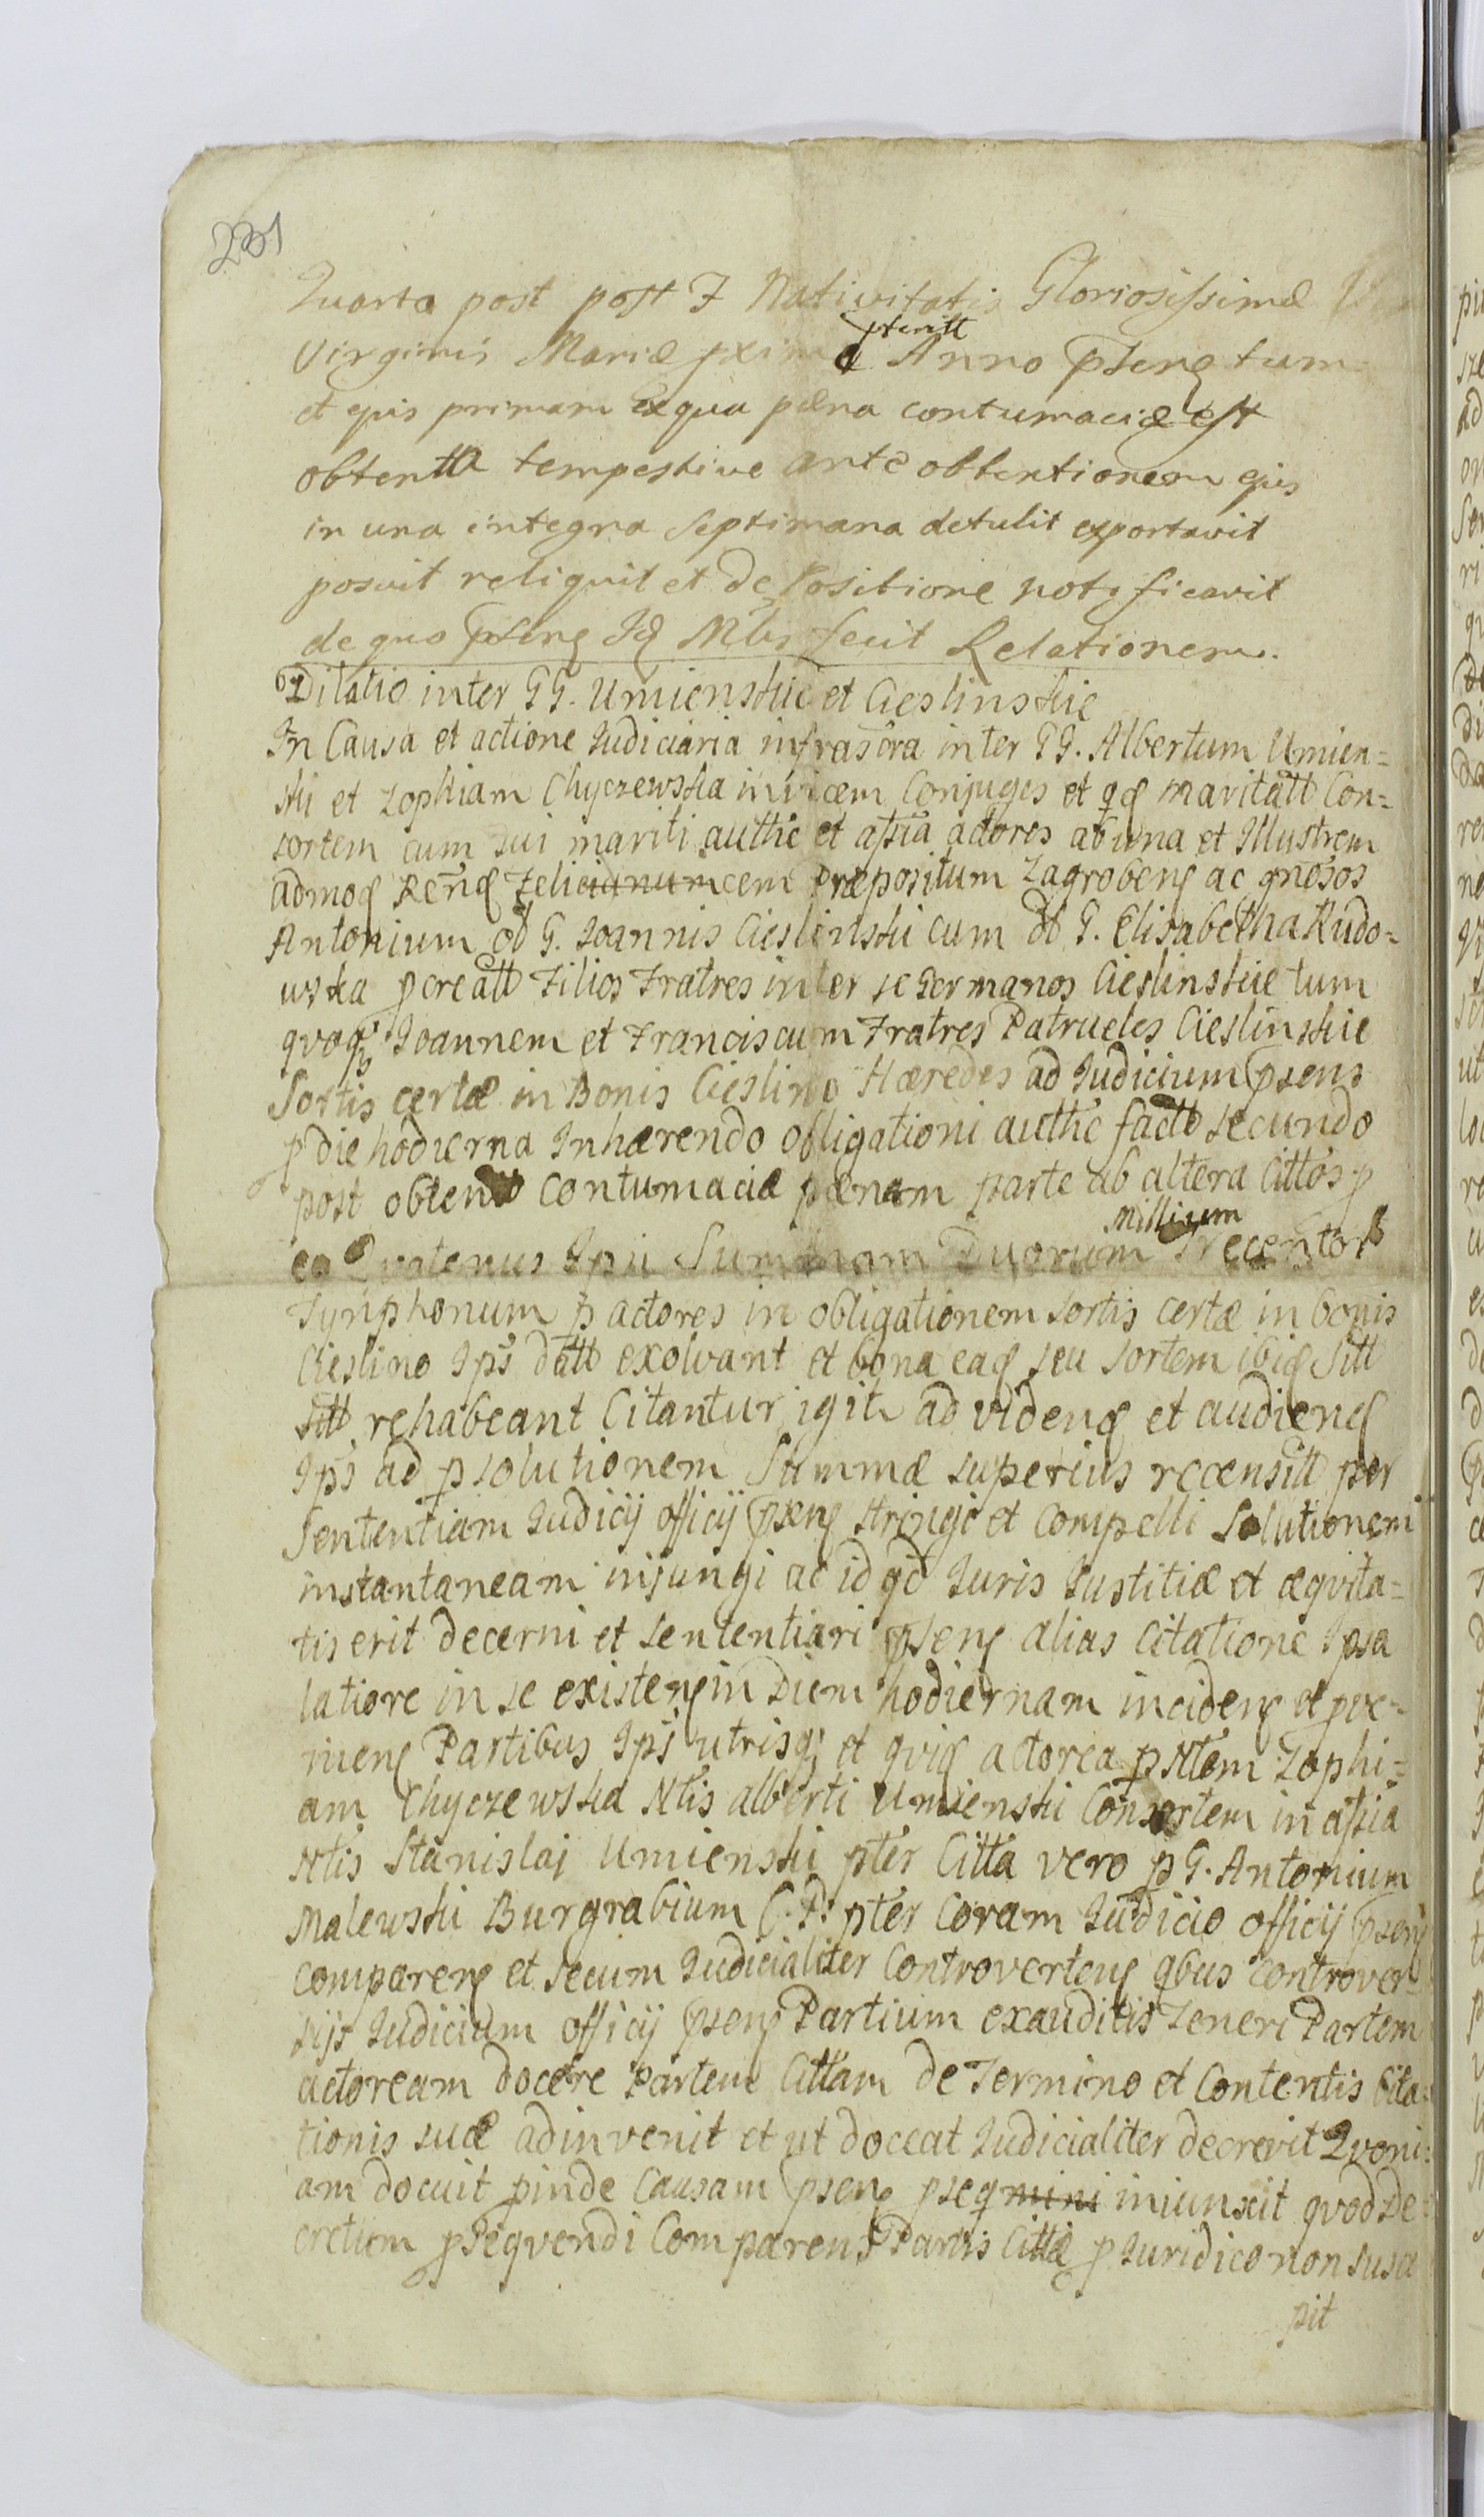 231
Quarta post post F Nativitatis Gloriosissimæ
Virginis Mariæ pxime pteritt Anno psenꝫ tum
et ejus primam Exqua pæna contumaciæ est
obtentta tempestive ante obtentionem ejus
in una integra Septimana detulit exportavit
posuit reliquit et de Positione notificavit
de quo psenꝫ Idꝫ Mlis fecit Relationem.
Dilatio inter GG. Umienskie et Cieslinskie
In Causa et actione Judiciaria infrascra inter GG. Albertum Umien=
ski et Zophiam Chyczewska invicem Conjuges et qꝫ maritatt Con=
sortem cum sui mariti authe et assia actores ab una et Illustrem
admoꝫ Rendꝫ Felicianum cem Præpositum Zagrobenꝫ ac gnosos
Antonium ol G. Joannis Cieslinski cum ol G. Elisabetha Rudo=
wska pcreatt Filios Fratres inter se Germanos Cieslinskie tum
qvoqꝫ Joannem et Franciscum Fratres Patrueles Cieslinskie
Sortis certæ in Bonis Cieslino Hæredes ad Judicium psens
p die hodierna Inhærendo obligationi authe factt secundo
post obtentt Contumaciæ pænam parte ab altera Cittos p
eo Qvatenus Ipsi Summam Duorum Millium Trecentors
Tynphonum p actores in obligationem sortis certæ in bonis
Cieslino Ips datt exolvant et bona eaꝫ seu sortem ibiꝫ sitt
sitt rehabeant Citantur igitr ad videnꝫ et audienꝫ
Ips ad psolutionem Summæ superius recensitt per
Sententiam Judicij officij psenꝫ stringi et compelli Solutionem
instantaneam injungi ac id qd Juris Justitiæ et æqvita=
tis erit decerni et sententiari psenꝫ alias Citatione Ipsa
latiore in se existenꝫ in Diem hodiernam incidenꝫ et pve=
nienꝫ Partibus Ips utrisqꝫ et qviꝫ actorea p Ntem Zophi=
am Chyczewska Ntis alberti Umienski Consortem in assia
Ntis Stanislai Umienski pter Citta vero p G. Antonium
Malewski Burgrabium C. P. pter Coram Judicio officij psenꝫ
comparenꝫ et secum Judicialiter Controvertenꝫ qbus controver=
sijs Judicium officij psenꝫ Partium exauditis Teneri Partem
actoream docere Partem Cittam de Termino et Contentis Cita=
tionis suæ adinvenit et ut doceat Judicialiter decrevit Qvoni=
am docuit pinde Causam psenꝫ pseq mini iniunxit qvod De=
cretum pseqvendi Comparens Partis Cittæ p Juridico non susce
pit